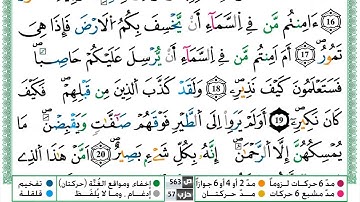 16 ءَامِنتُم مَّن فِي اِ۬لسَّمَآءِ اَ۬نْ يَّخْسِفَ بِكُمُ اُ۬لَارْضَ فَإِذَا هِيَ
تَمُورُۖ 17 أَمَ اَمِنتُم مَّن فِي اِ۬لسَّمَآءِ اَ۬نْ يُّرْسِلَ عَلَيْكُمْ حَاصِباٗۖ
فَسَتَعْلَمُونَ كَيْفَ نَذِيرِۦۖ 18 وَلَقَدْ كَذَّبَ اَ۬لذِينَ مِن قَبْلِهِمْ فَكَيْفَ
كَانَ نَكِيرِۦٓۖ 19 أَوَلَمْ يَرَوِاْ اِلَى اَ۬لطَّيْرِ فَوْقَهُمْ صَٰٓفَّٰتٖ وَيَقْبِضْنَۖ مَا
يُمْسِكُهُنَّ إِلَّا اَ۬لرَّحْمَٰنُۖ إِنَّهُۥ بِكُلِّ شَےْءِۢ بَصِيرٌۖ 20 اَمَّنْ هَٰذَا اَ۬لذِے
مدّ 6 حركات لزوماً مدّ 2 أو 4 أو 6 جوازاً ص 563 إخفاء، ومواقع الغُنَّة (حركتان) تفخيم
مدّ مشبع 6 حركات مدّ حركتان حزب 57 إدغام، وما لا يُلفَظ قلقلة